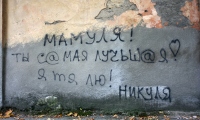 МАМУЛЯ!
ТЫ С@МАЯ ЛУЧЬШ@Я♡
Я ТЯ ЛЮ!
НИКУЛЯ